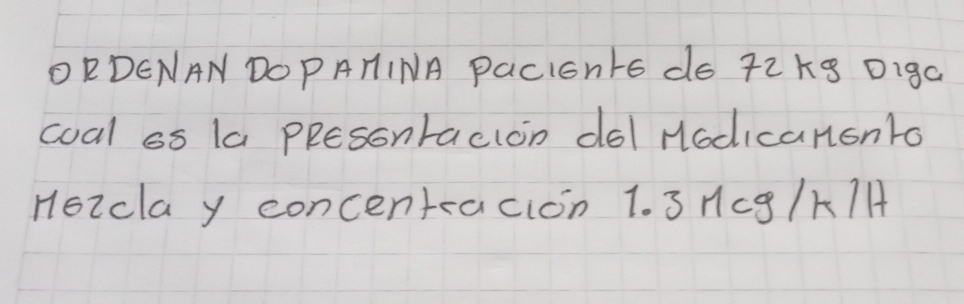 ORDENAN DOPAMINA paciente de 72 kg Diga
cual es la PRESentación del Medicamento
Mezcla y concentración 1.3 Mcg/K/H